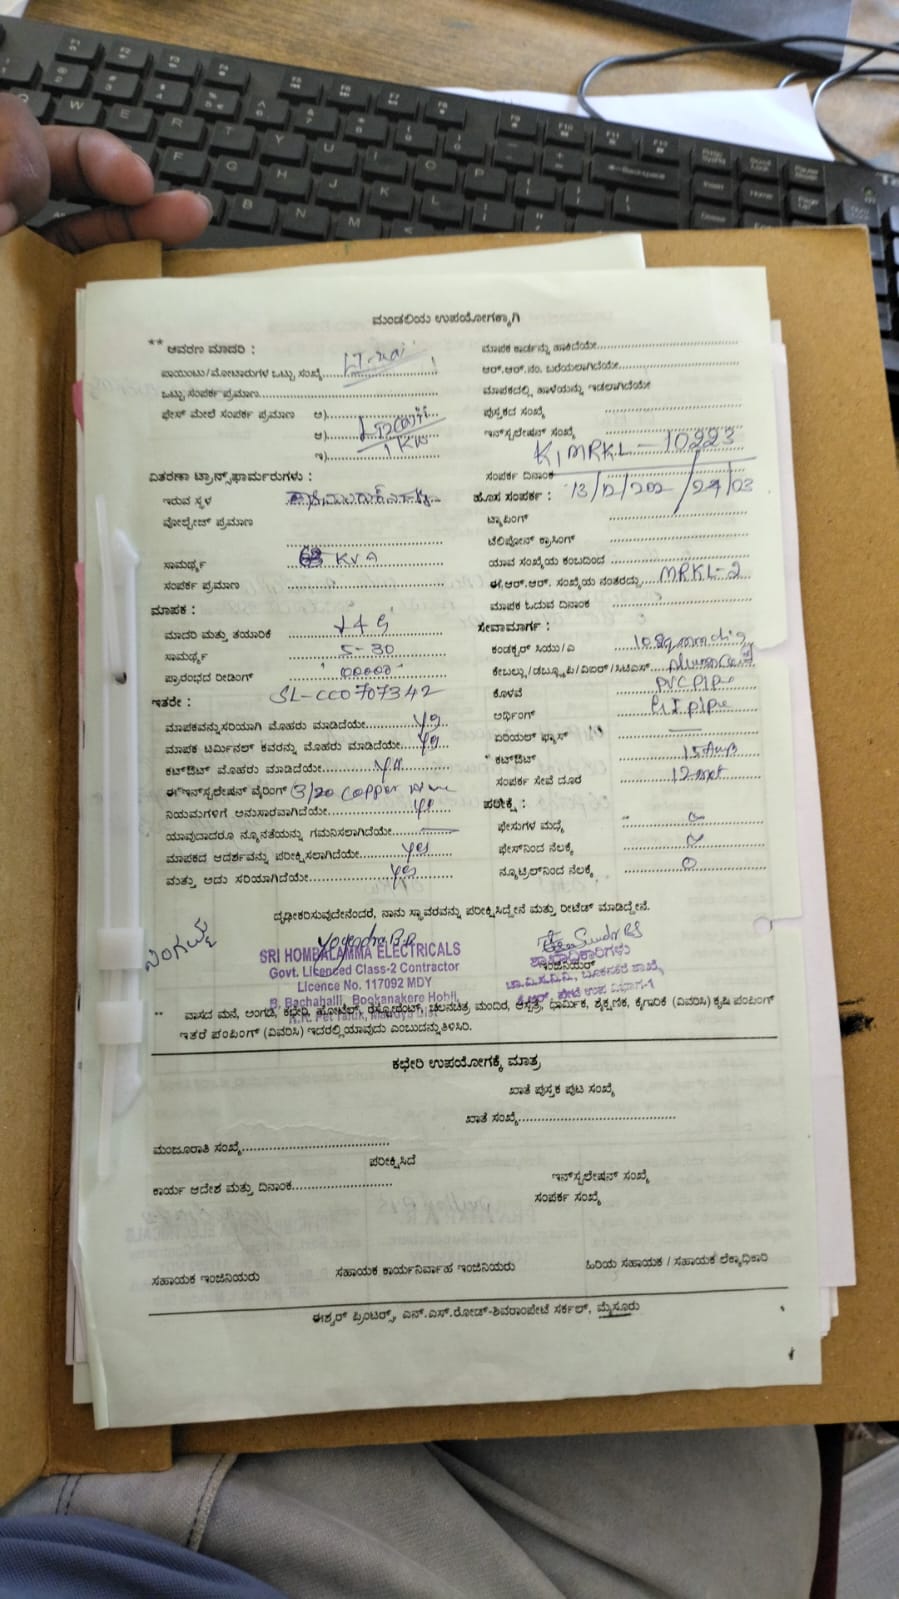 ಮಂಡಲಿಯ ಉಪಯೋಗಕ್ಕಾಗಿ
** ಆವರಣ ಮಾದರಿ :
ಪಾಯಿಂಟು/ಮೋಟಾರುಗಳ ಒಟ್ಟು ಸಂಖ್ಯೆ
ಒಟ್ಟು ಸಂಪರ್ಕ ಪ್ರಮಾಣ
ಫೇಸ್ ಮೇಲೆ ಸಂಪರ್ಕ ಪ್ರಮಾಣ ಅ)
ಆ)
ಇ) 1 KW
ವಿತರಣಾ ಟ್ರಾನ್ಸ್‌ಫಾರ್ಮರುಗಳು :
ಇರುವ ಸ್ಥಳ
ವೋಲ್ಟೇಜ್ ಪ್ರಮಾಣ
ಸಾಮರ್ಥ್ಯ 63 KVA
ಸಂಪರ್ಕ ಪ್ರಮಾಣ
ಮಾಪಕ :
ಮಾದರಿ ಮತ್ತು ತಯಾರಿಕೆ
ಸಾಮರ್ಥ್ಯ 5-30
ಪ್ರಾರಂಭದ ರೀಡಿಂಗ್ 00000
ಇತರೇ : SL-CC0707342
ಮಾಪಕವನ್ನು ಸರಿಯಾಗಿ ಮೊಹರು ಮಾಡಿದೆಯೇ
ಮಾಪಕ ಟರ್ಮಿನಲ್ ಕವರನ್ನು ಮೊಹರು ಮಾಡಿದೆಯೇ
ಕಟ್‌ಔಟ್ ಮೊಹರು ಮಾಡಿದೆಯೇ
ಈ ಇನ್‌ಸ್ಟಲೇಷನ್ ವೈರಿಂಗ್ 3/20 copper
ನಿಯಮಗಳಿಗೆ ಅನುಸಾರವಾಗಿದೆಯೇ
ಯಾವುದಾದರೂ ನ್ಯೂನತೆಯನ್ನು ಗಮನಿಸಲಾಗಿದೆಯೇ
ಮಾಪಕದ ಆದರ್ಶವನ್ನು ಪರೀಕ್ಷಿಸಲಾಗಿದೆಯೇ yes
ಮತ್ತು ಅದು ಸರಿಯಾಗಿದೆಯೇ yes
ಮಾಪಕ ಕಾರ್ಡನ್ನು ಹಾಕಿದೆಯೇ
ಆರ್.ಆರ್.ನಂ. ಬರೆಯಲಾಗಿದೆಯೇ
ಮಾಪಕದಲ್ಲಿ ಹಾಳೆಯನ್ನು ಇಡಲಾಗಿದೆಯೇ
ಪುಸ್ತಕದ ಸಂಖ್ಯೆ
ಇನ್‌ಸ್ಟಲೇಷನ್ ಸಂಖ್ಯೆ
K1MRKL - 10223
ಸಂಪರ್ಕ ದಿನಾಂಕ
ಹೊಸ ಸಂಪರ್ಕ :
ಟ್ಯಾಪಿಂಗ್
ಟೆಲಿಫೋನ್ ಕ್ರಾಸಿಂಗ್
ಯಾವ ಸಂಖ್ಯೆಯ ಕಂಬದಿಂದ
ಈ ಆರ್.ಆರ್. ಸಂಖ್ಯೆಯ ನಂತರದ್ದು MRKL-2
ಮಾಪಕ ಓದುವ ದಿನಾಂಕ
ಸೇವಾಮಾರ್ಗ :
ಕಂಡಕ್ಟರ್ ಸಿಯು/ಎ
ಕೇಬಲ್ಲು/ಡಬ್ಲ್ಯೂಪಿ/ವಿಐಆರ್/ಸಿಟಿಎಸ್
ಕೊಳವೆ PVC Pipe
ಅರ್ಥಿಂಗ್ G I pipe
ಏರಿಯಲ್ ಫ್ಯೂಸ್
ಕಟ್‌ಔಟ್ 15 Amp
ಸಂಪರ್ಕ ಸೇವೆ ದೂರ
ಪರೀಕ್ಷೆ :
ಫೇಸುಗಳ ಮಧ್ಯೆ
ಫೇಸ್‌ನಿಂದ ನೆಲಕ್ಕೆ
ನ್ಯೂಟ್ರಲ್‌ನಿಂದ ನೆಲಕ್ಕೆ 0
ದೃಢೀಕರಿಸುವುದೇನೆಂದರೆ, ನಾನು ಸ್ಥಾವರವನ್ನು ಪರೀಕ್ಷಿಸಿದ್ದೇನೆ ಮತ್ತು ರೀಟೆಡ್ ಮಾಡಿದ್ದೇನೆ.
SRI HOMBALAMMA ELECTRICALS
Govt. Licenced Class-2 Contractor
Licence No. 117092 MDY
B. Bachahalli, Bookanakere Hobli,
K.R. Pet Taluk, Mandya Dist.
ಶಾಖಾಧಿಕಾರಿಗಳು
ಇಂಜಿನಿಯರ್
ಚಾ.ವಿ.ಸ.ನಿ.ನಿ., ಬೂಕನಕೆರೆ ಶಾಖೆ
ಕೆ.ಆರ್. ಪೇಟೆ ಉಪ ವಿಭಾಗ-1
** ವಾಸದ ಮನೆ, ಅಂಗಡಿ, ಕಛೇರಿ, ಹೋಟೆಲ್, ರೆಸ್ಟೋರೆಂಟ್, ಚಲನಚಿತ್ರ ಮಂದಿರ, ಆಸ್ಪತ್ರೆ, ಧಾರ್ಮಿಕ, ಶೈಕ್ಷಣಿಕ, ಕೈಗಾರಿಕೆ (ವಿವರಿಸಿ) ಕೃಷಿ ಪಂಪಿಂಗ್
ಇತರೆ ಪಂಪಿಂಗ್ (ವಿವರಿಸಿ) ಇದರಲ್ಲಿ ಯಾವುದು ಎಂಬುದನ್ನು ತಿಳಿಸಿರಿ.
ಕಛೇರಿ ಉಪಯೋಗಕ್ಕೆ ಮಾತ್ರ
ಖಾತೆ ಪುಸ್ತಕ ಪುಟ ಸಂಖ್ಯೆ
ಖಾತೆ ಸಂಖ್ಯೆ
ಮಂಜೂರಾತಿ ಸಂಖ್ಯೆ
ಪರೀಕ್ಷಿಸಿದೆ
ಕಾರ್ಯ ಆದೇಶ ಮತ್ತು ದಿನಾಂಕ
ಇನ್‌ಸ್ಟಲೇಷನ್ ಸಂಖ್ಯೆ
ಸಂಪರ್ಕ ಸಂಖ್ಯೆ
ಸಹಾಯಕ ಇಂಜಿನಿಯರು ಸಹಾಯಕ ಕಾರ್ಯನಿರ್ವಾಹ ಇಂಜಿನಿಯರು ಹಿರಿಯ ಸಹಾಯಕ / ಸಹಾಯಕ ಲೆಕ್ಕಾಧಿಕಾರಿ
ಈಶ್ವರ್ ಪ್ರಿಂಟರ್ಸ್, ಎನ್.ಎಸ್.ರೋಡ್-ಶಿವರಾಂಪೇಟೆ ಸರ್ಕಲ್, ಮೈಸೂರು